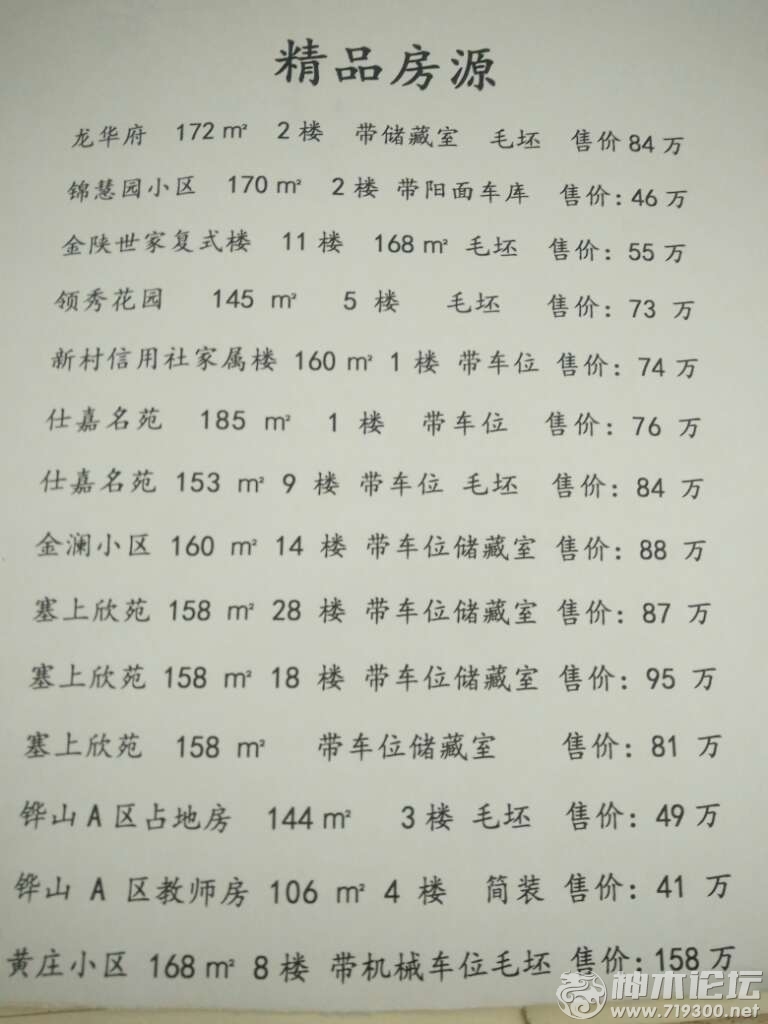 精品房源
龙华府 172㎡ 2楼 带储藏室 毛坯 售价84万
锦慧园小区 170㎡ 2楼 带阳面车库 售价：46万
金陕世家复式楼 11楼 168㎡ 毛坯 售价：55万
领秀花园 145㎡ 5楼 毛坯 售价：73万
新村信用社家属楼 160㎡ 1楼 带车位 售价：74万
仕嘉名苑 185㎡ 1楼 带车位 售价：76万
仕嘉名苑 153㎡ 9楼 带车位 毛坯 售价：84万
金澜小区 160㎡ 14楼 带车位储藏室 售价：88万
塞上欣苑 158㎡ 28楼 带车位储藏室 售价：87万
塞上欣苑 158㎡ 18楼 带车位储藏室 售价：95万
塞上欣苑 158㎡ 带车位储藏室 售价：81万
铧山A区占地房 144㎡ 3楼 毛坯 售价：49万
铧山A区教师房 106㎡ 4楼 简装 售价：41万
黄庄小区 168㎡ 8楼 带机械车位毛坯 售价：158万
神木论坛
www.719300.net